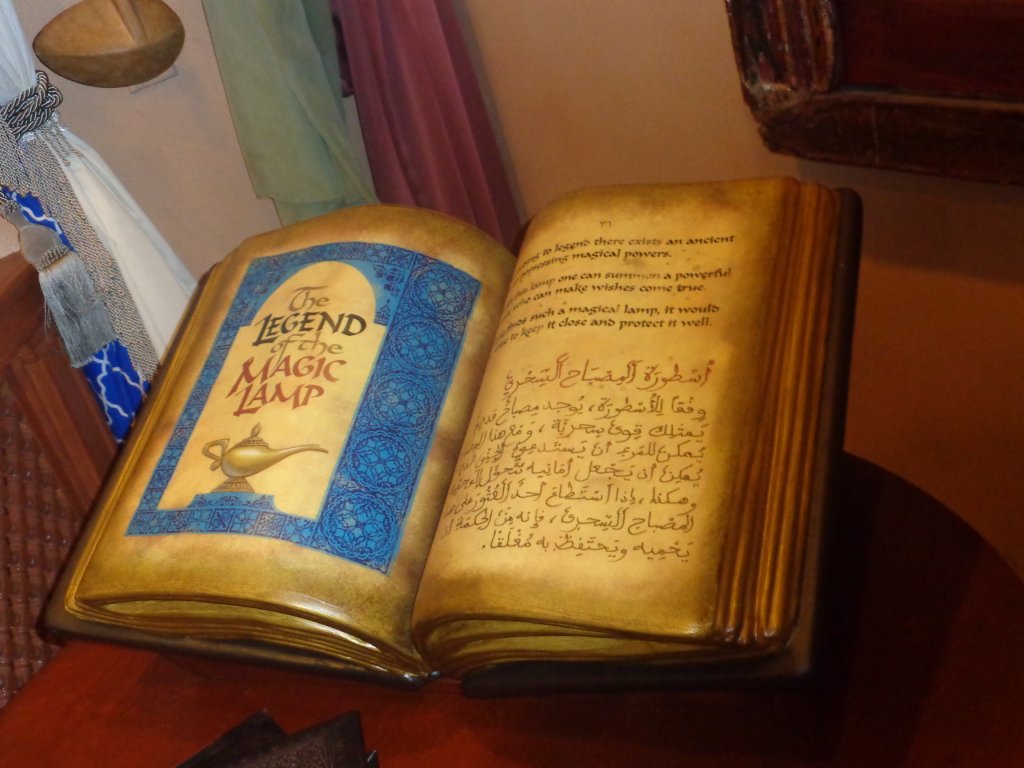 The
LEGEND
of the
MAGIC
LAMP
٣١
to legend there exists an ancient
possessing magical powers.
this lamp one can summon a powerful
who can make wishes come true.
finds such a magical lamp, it would
to keep it close and protect it well.
أُسْطورَة اَلمِصْبَاح اَلسِّحْرِيّ
وِفْقاً لِلأُسْطورَة، يُوجَد مِصباح
يَمتَلِك قِوىً سِحرِيَّة، وَمَع هٰذا
يُمكِن لِلمَرءِ أَنْ يَسْتَدعِيَ
يُمكِنُ أن يَجْعَل أمَانِيه تَتَحَوَّل
وهكذا، إذا اسْتَطَاعَ أحدٌ العُثُورَ على
المِصْباح السِّحرِيّ، فإنه مِنَ الحِكمَة أن
يَحْمِيه ويَحتَفِظَ به مُغْلَقًا.